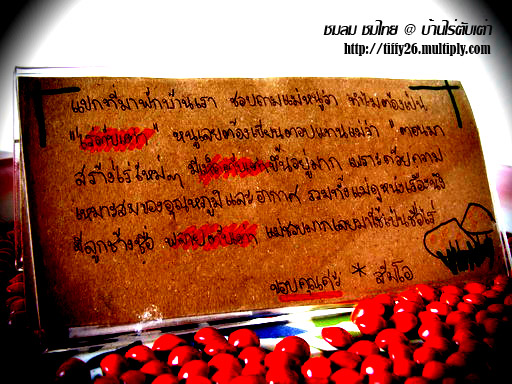 ชมลม ชมไทย @ บ้านไร่ตับเต่า
http://tiffy26.multiply.com
แขกที่มาพักบ้านเรา ชอบถามแม่หนูว่า ทำไมต้องเป็น
" ไร่ตับเต่า " หนูเลยต้องเขียนตอบแทนแม่ว่า " ตอนมา
สร้างไร่ใหม่ๆ มีเห็ดตับเต่าขึ้นอยู่มาก เพราะด้วยความ
เหมาะสมของอุณหภูมิและอากาศ รวมทั้งแม่ดูหนังเรื่องนึง
มีลูกช้างชื่อ พลายตับเต่า แม่ชอบมากเลยมาใช้เป็นชื่อไร่
ขอบคุณค่ะ * ส้มโอ